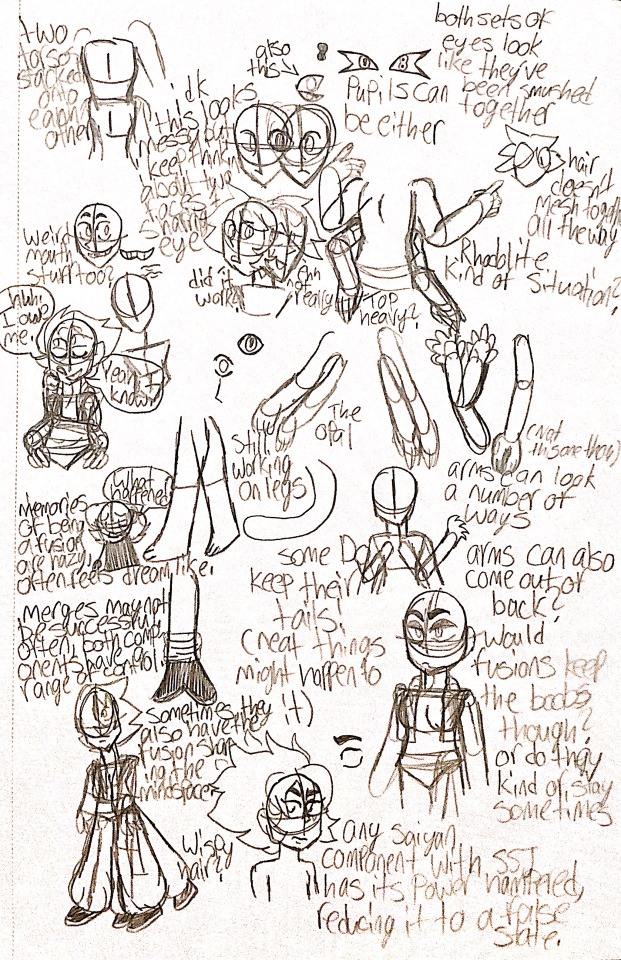 two
torsos
stacked
onto
each
other
idk
this looks
messy but
keep thinking
about two
faces
sharing
eye
also
this
both sets of
eyes look
like they've
been smushed
together
Pupils can
be either
hair
doesn't
mesh together
all the way
Rhodolite
kind of situation?
weird
mouth
stuff too?
did it
work?
Ehh
not
really
Top
heavy?
I owe
me.
Yeah I
know
Still
working
on legs
The
Opal
(not
this one tho)
arms can look
a number of
ways
What
happened
memories
of being
a fusion
are hazy,
often feels dreamlike.
some Do
keep their
tails!
(neat things
might happen to
it)
arms can also
come out of
back?
Merges may not
be successful
often, both comp-
onents have control
range
would
fusions keep
the boobs
though?
or do they
kind of stay
sometimes
Sometimes they
also have the
fusion shar-
ing the
mindspace
Wispy
hair?
any saiyan
component with SSJ
has its power hampered,
reducing it to a false
state.